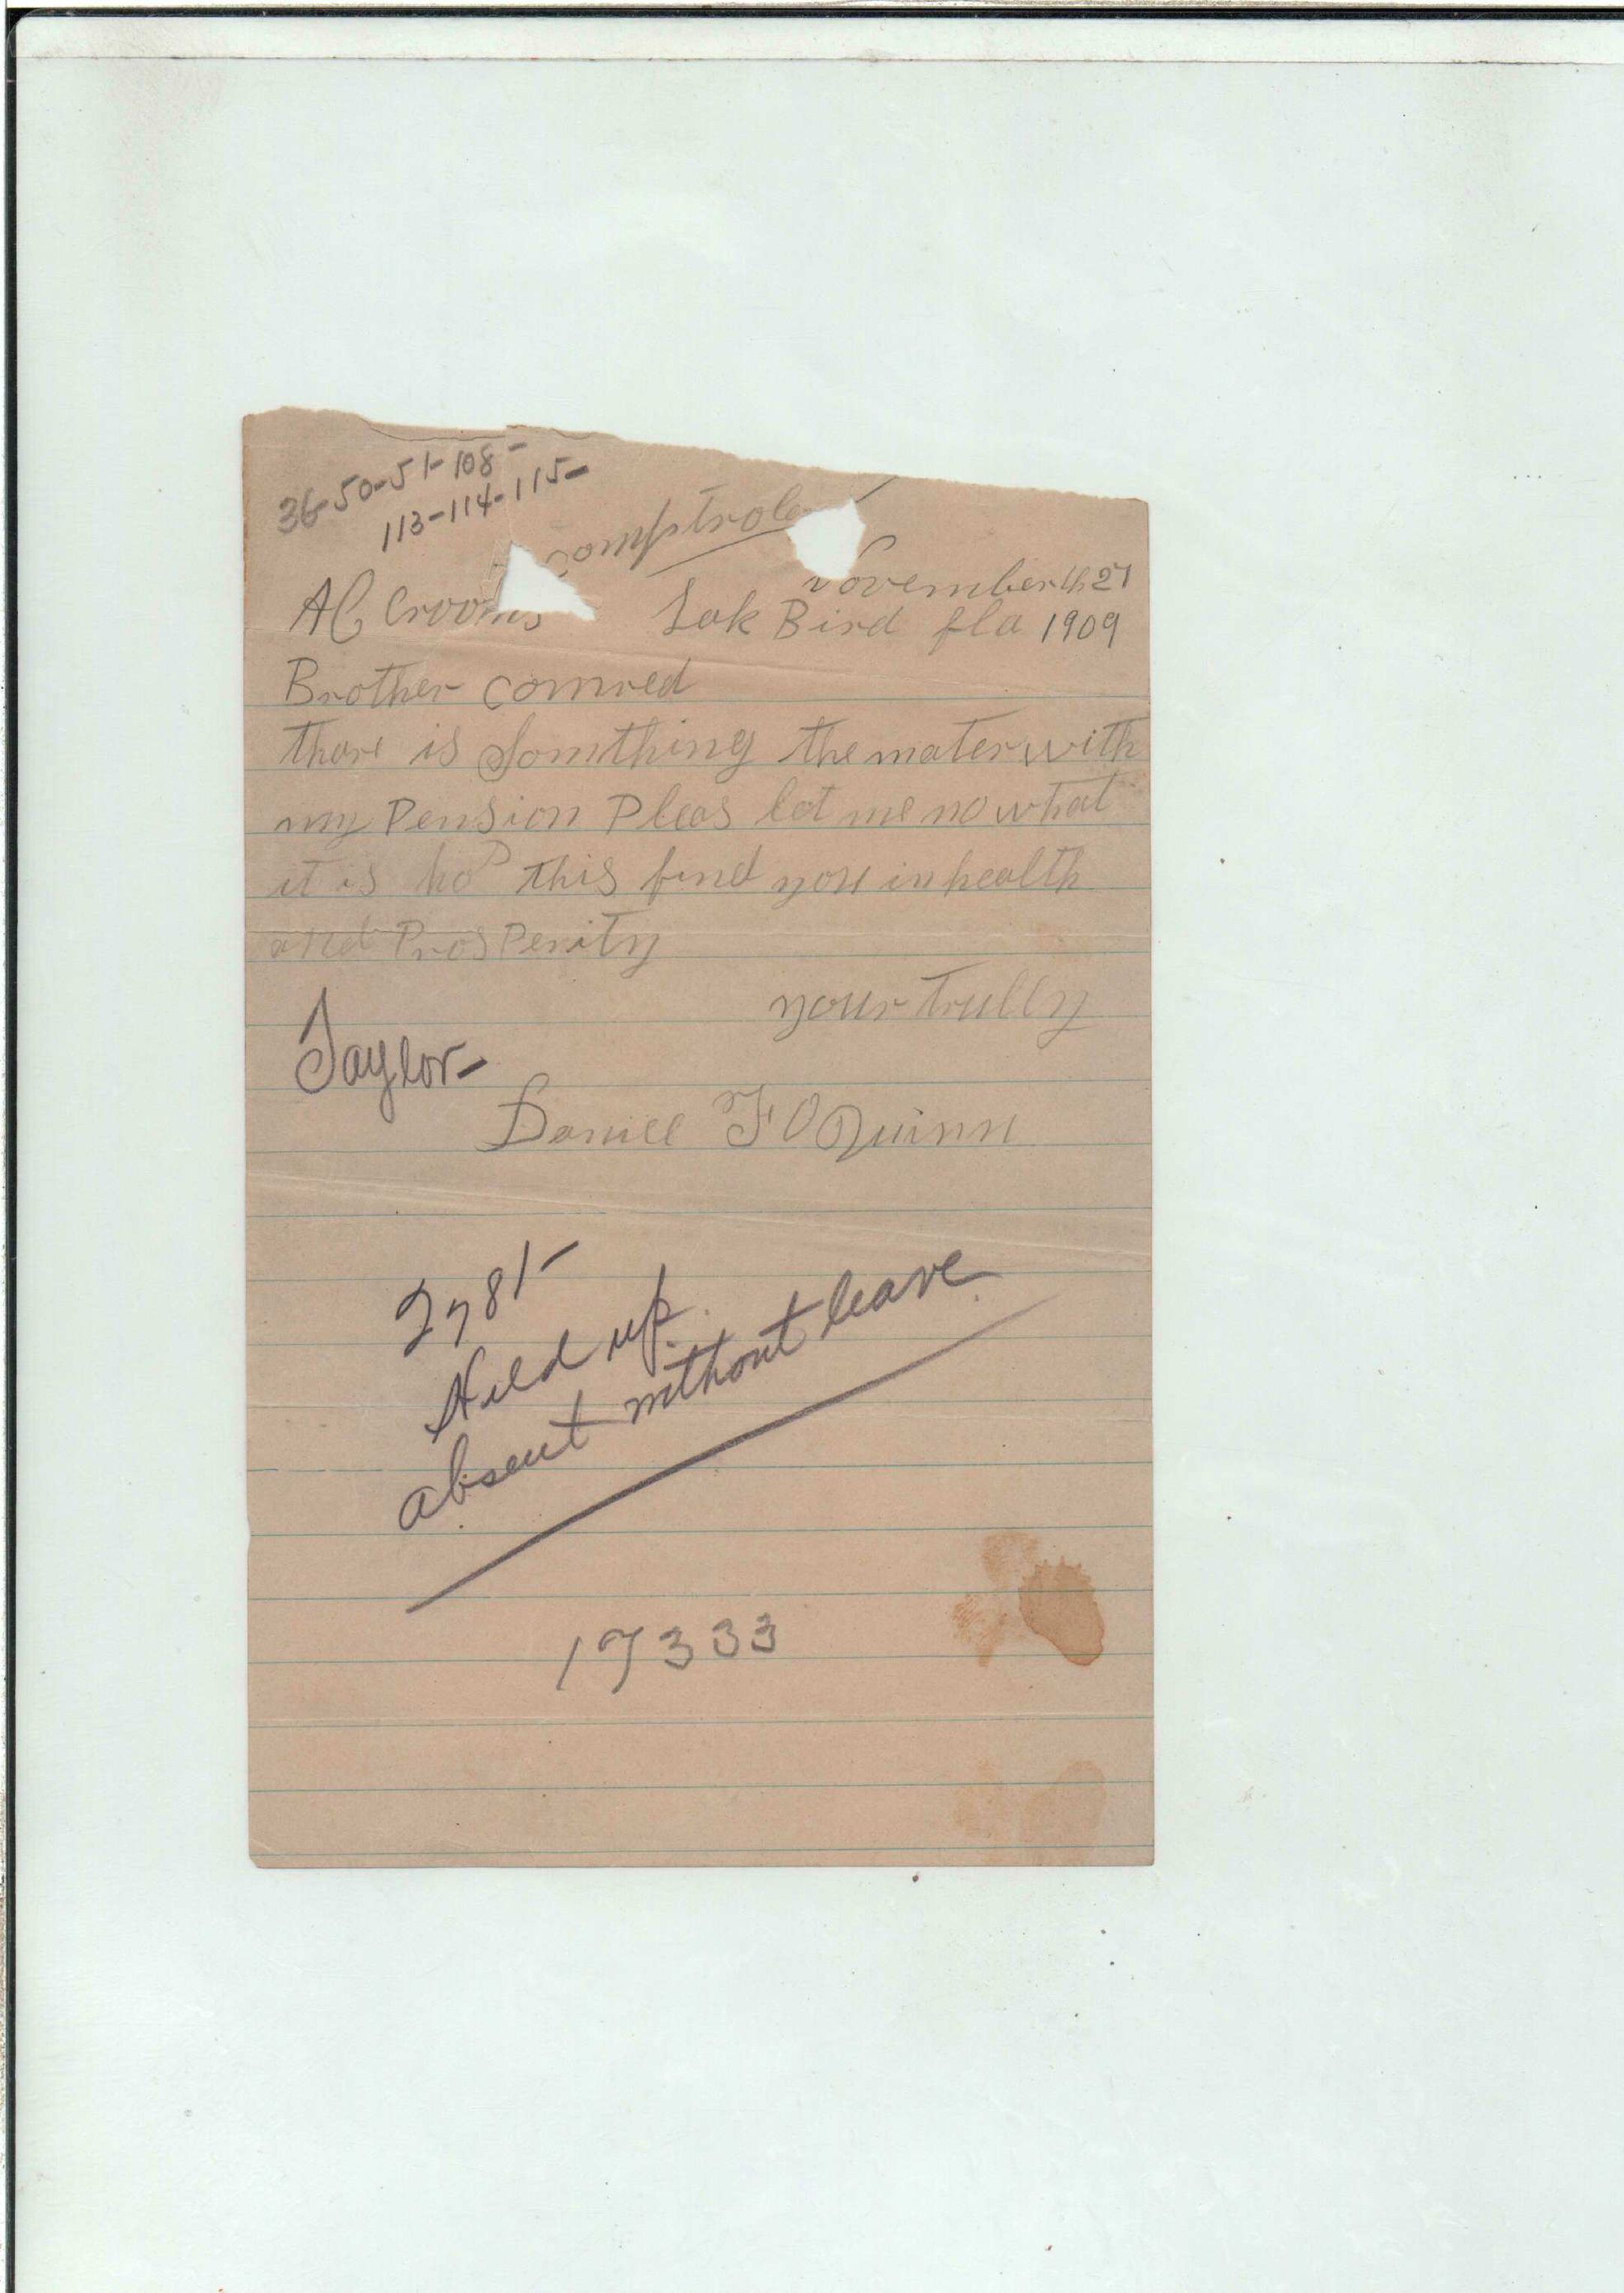 36-50-51-108-
113-114-115-
Comptroler
November th 27
AC Crooms Lak Bird fla 1909
Brother comred
thare is Somthing the mater with
my Pension Pleas let me no what
it is hop this find you in health
and Prosperity
your trully
Taylor-
Daniel F O Quinn
2781-
Held up.
absent without leave
17333